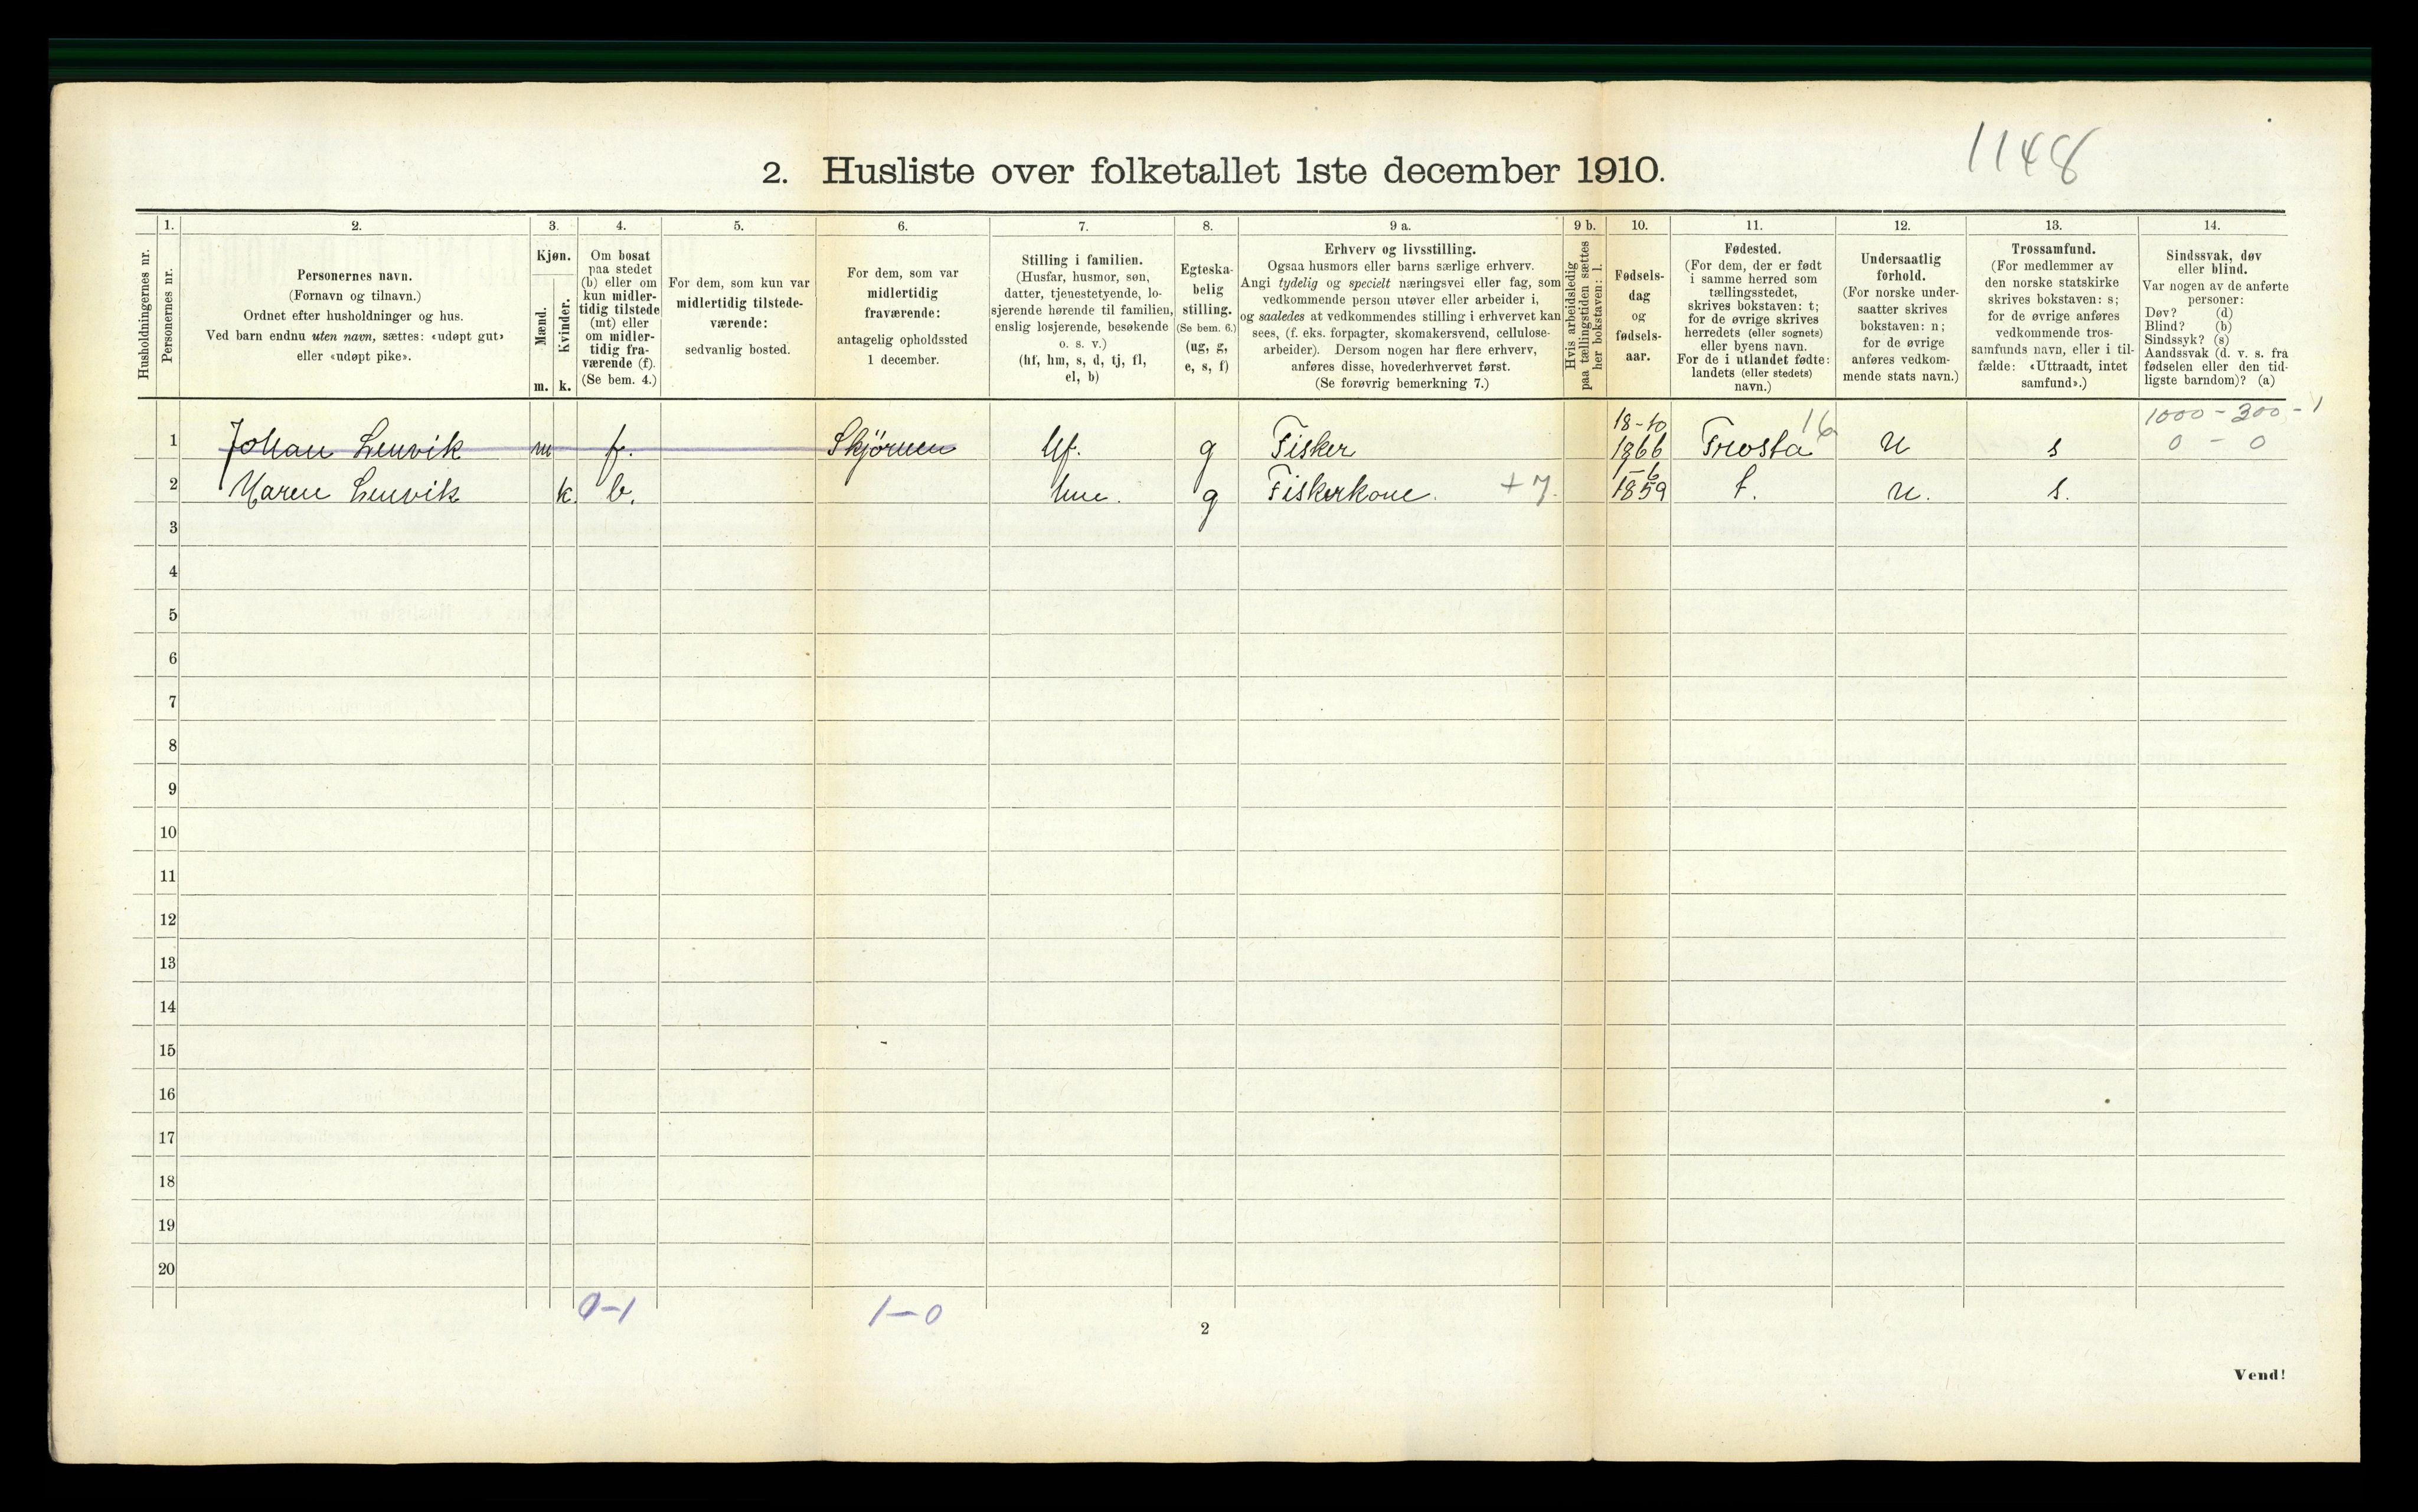 1148
2. Husliste over folketallet 1ste december 1910.
Husholdningernes nr.
1.
Personernes nr.
2.
Personernes navn.
(Fornavn og tilnavn.)
Ordnet efter husholdninger og hus.
Ved barn endnu uten navn, sættes: «udøpt gut»
eller «udøpt pike».
3.
Kjøn.
Mænd.
Kvinder.
m. k.
4.
Om bosat
paa stedet
(b) eller om
kun midler-
tidig tilstede
(mt) eller
om midler-
tidig fra-
værende (f).
(Se bem. 4.)
5.
For dem, som kun var
midlertidig tilstede-
værende:
sedvanlig bosted.
6.
For dem, som var
midlertidig
fraværende:
antagelig opholdssted
1 december.
7.
Stilling i familien.
(Husfar, husmor, søn,
datter, tjenestetyende, lo-
sjerende hørende til familien,
enslig losjerende, besøkende
o. s. v.)
(hf, hm, s, d, tj, fl,
el, b)
8.
Egteska-
belig
stilling.
(Se bem. 6.)
(ug, g,
e, s, f)
9 a.
Erhverv og livsstilling.
Ogsaa husmors eller barns særlige erhverv.
Angi tydelig og specielt næringsvei eller fag, som
vedkommende person utøver eller arbeider i,
og saaledes at vedkommendes stilling i erhvervet kan
sees, (f. eks. forpagter, skomakersvend, cellulose-
arbeider). Dersom nogen har flere erhverv,
anføres disse, hovederhvervet først.
(Se forøvrig bemerkning 7.)
9 b.
Hvis arbeidsledig
paa tællingstiden sættes
her bokstaven: l.
10.
Fødsels-
dag
og
fødsels-
aar.
11.
Fødested.
(For dem, der er født
i samme herred som
tællingsstedet,
skrives bokstaven: t;
for de øvrige skrives
herredets (eller sognets)
eller byens navn.
For de i utlandet fødte:
landets (eller stedets)
navn.)
12.
Undersaatlig
forhold.
(For norske under-
saatter skrives
bokstaven: n;
for de øvrige
anføres vedkom-
mende stats navn.)
13.
Trossamfund.
(For medlemmer av
den norske statskirke
skrives bokstaven: s;
for de øvrige anføres
vedkommende tros-
samfunds navn, eller i til-
fælde: «Uttraadt, intet
samfund».)
14.
Sindssvak, døv
eller blind.
Var nogen av de anførte
personer:
Døv? (d)
Blind? (b)
Sindssyk? (s)
Aandssvak (d. v. s. fra
fødselen eller den tid-
ligste barndom)? (a)
1000 - 300 - 1
0 - 0
1 Johan Lenvik m f. Skjørnen Hf. g Fisker 18-10 1866 Frosta 16 n s
2 Maren Lenvik k. b. hm. g Fiskerkone. + 7. 1859 t. n. s.
3
4
5
6
7
8
9
10
11
12
13
14
15
16
17
18
19
20
0-1
1-0
2
Vend!